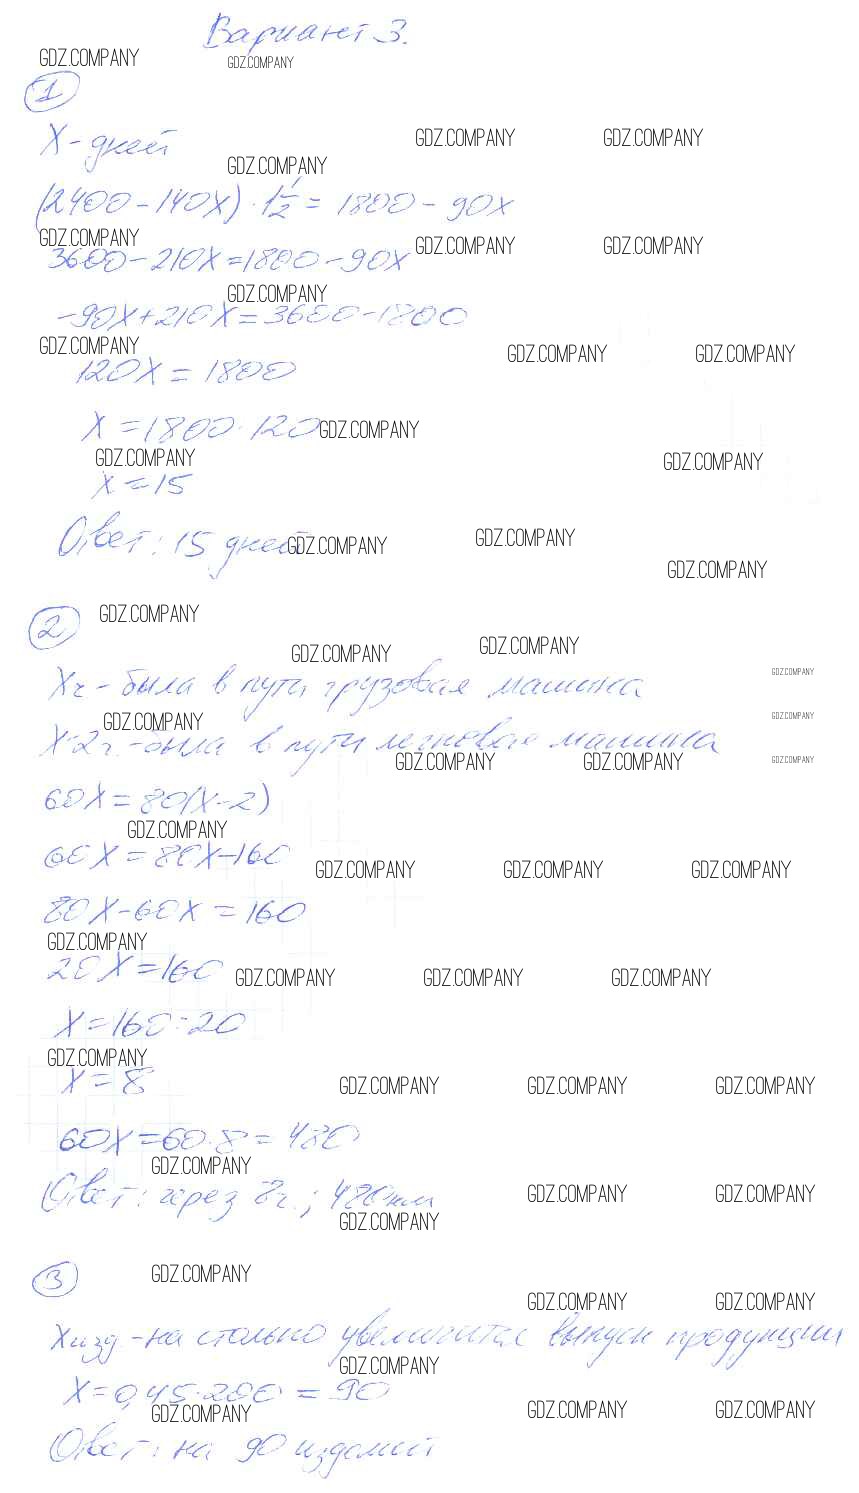 Вариант 3.
GDZ.COMPANY GDZ.COMPANY
1
X - дней
GDZ.COMPANY GDZ.COMPANY
GDZ.COMPANY
(2400 - 140X) · 1 1/2 = 1800 - 90X
GDZ.COMPANY GDZ.COMPANY GDZ.COMPANY
3600 - 210X = 1800 - 90X
GDZ.COMPANY
-90X + 210X = 3600 - 1800
GDZ.COMPANY GDZ.COMPANY GDZ.COMPANY
120X = 1800
X = 1800 : 120 GDZ.COMPANY
GDZ.COMPANY GDZ.COMPANY
X = 15
Ответ: 15 дней GDZ.COMPANY GDZ.COMPANY
GDZ.COMPANY
2 GDZ.COMPANY
GDZ.COMPANY GDZ.COMPANY
Xч - была в пути грузовая машина GDZ.COMPANY
GDZ.COMPANY GDZ.COMPANY
X-2ч. - была в пути легковая машина
GDZ.COMPANY GDZ.COMPANY GDZ.COMPANY
60X = 80(X-2)
GDZ.COMPANY
60X = 80X - 160
GDZ.COMPANY GDZ.COMPANY GDZ.COMPANY
80X - 60X = 160
GDZ.COMPANY
20X = 160 GDZ.COMPANY GDZ.COMPANY GDZ.COMPANY
X = 160 : 20
GDZ.COMPANY
X = 8 GDZ.COMPANY GDZ.COMPANY GDZ.COMPANY
60X = 60 · 8 = 480
GDZ.COMPANY
Ответ: через 8ч.; 480 км GDZ.COMPANY GDZ.COMPANY
GDZ.COMPANY
3 GDZ.COMPANY
GDZ.COMPANY GDZ.COMPANY
X изд. - на столько увеличится выпуск продукции
GDZ.COMPANY
X = 0,45 · 200 = 90
GDZ.COMPANY GDZ.COMPANY GDZ.COMPANY
Ответ: на 90 изделий